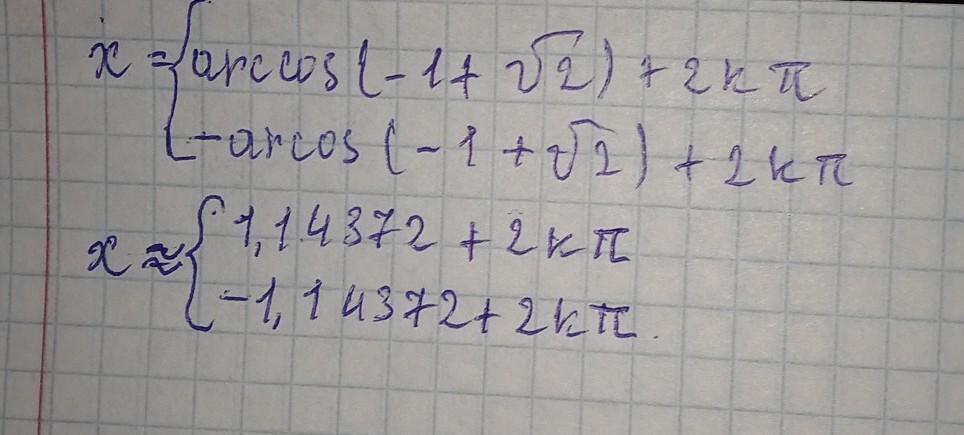 x = { arccos(-1+√2) + 2kπ
{ -arcos(-1+√2) + 2kπ
x ≈ { 1,14372 + 2kπ
{ -1,14372 + 2kπ.